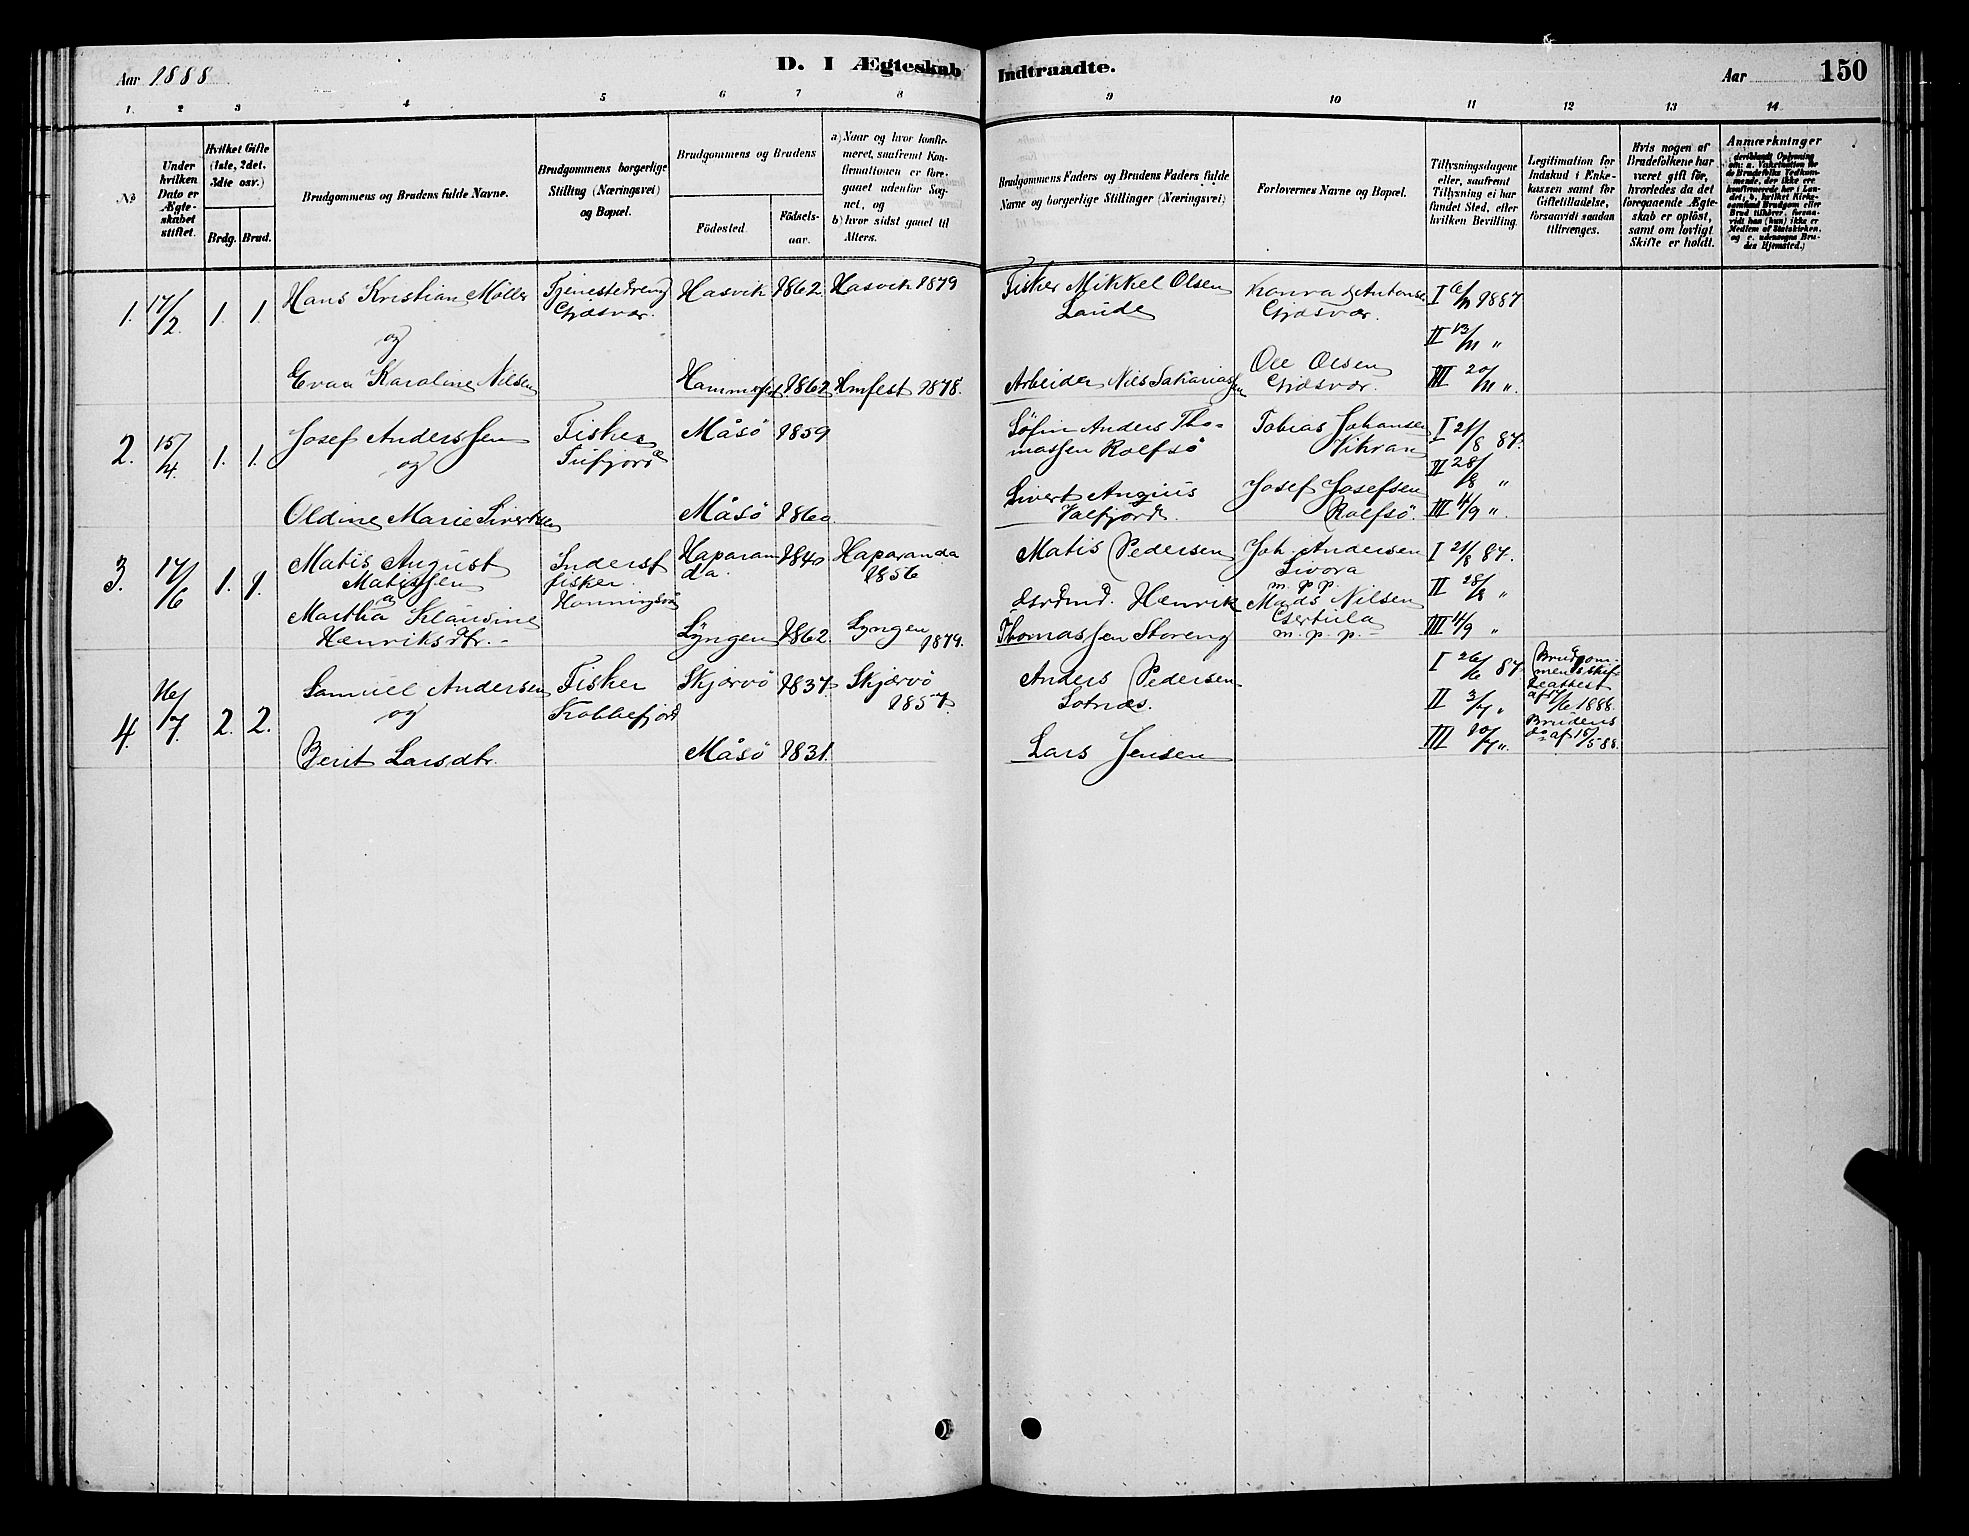 Aar 1888
D. I Ægteskab Indtraadte.
Aar 150
1. 2 3 4 5 6 7 8 9 10 11 12 13 14
No
Under hvilken Dato er Ægte-skabet stiftet.
Hvilket Gifte (1ste, 2det. 3die osv.)
Brdg. Brud.
Brudgommens og Brudens fulde Navne.
Brudgommens borgerlige Stilling (Næringsvei) og Bopæl.
Brudgommens og Brudens
Födested
Födsels-aar.
a) Naar og hvor konfir-meret, saafremt Kon-firmationen er fore-gaaet udenfor Sog-net, og
b) hvor sidst gaaet til Alters.
Brudgommens Faders og Brudens Faders fulde Navne og borgerlige Stillinger (Næringsvei)
Forlovernes Navne og Bopæl.
Tillysningsdagene eller, saafremt Tillysning ei har fundet Sted, efter hvilken Bevilling.
Legitimation for Indskud i Enke-kassen samt for Giftetilladelse, forsaavidt saadan tiltrænges.
Hvis nogen af Brudefolkene har været gift för, hvorledes da det foregaaende Ægte-skab er oplöst, samt om lovligt Skifte er holdt.
Anmærkninger
1. 17/2 1. 1. Hans Kristian Møller Tjenestedreng Gjæsvær. Hasvik 1862 Hasvik 1879 Fisker Mikkel Olsen Konrad Antonsen Gjæsvær. I 6/11 1887
og
II 13/11 "
Evaa Karoline Nilsen Hammerfest 1862 Hmfest 1878. Arbeider Nils Sakariassen Ole Olsen Gjæsvær. III 20/11 ".
2. 15/4. 1. 1. Josef Anderssen Fisker Tufjord Måsö 1859 Söfin Anders Tho-
massen Rolfsö Tobias Johansen Vikran I 21/8 87.
og
II 28/8 "
Oldine Marie Sivertsen Måsö 1860 Sivert Angius Valfjord. Josef Josefsen Rolfsö. III 4/9 ".
3. 17/6 1. 1. Matis August Matissen Inderst fisker. Honningsvåg Haparanda. 1840 Haparanda 1856 Matis Pedersen Joh. Andersen m. p. p. I 21/8 87.
II 28/8 "
Martha Klaudine Henriksdtr. Lyngen 1862. Lyngen 1879. Henrik Thomassen Storeng Mads Nilsen m. p. p. III 4/9 "
4. 16/7. 2. 2. Samuel Andersen Fisker Kobbefjord Skjærvö 1837 Skjærvö 1857 Anders Pedersen Sotnæs. I 26/6 87. Brudgom-
mens skif-
teattest
af 17/6 1888.
og
II 3/7 "
Berit Larsdtr. Måsö 1831. Lars Jensen III 10/7 ". Brudens
do af 15/5 88.